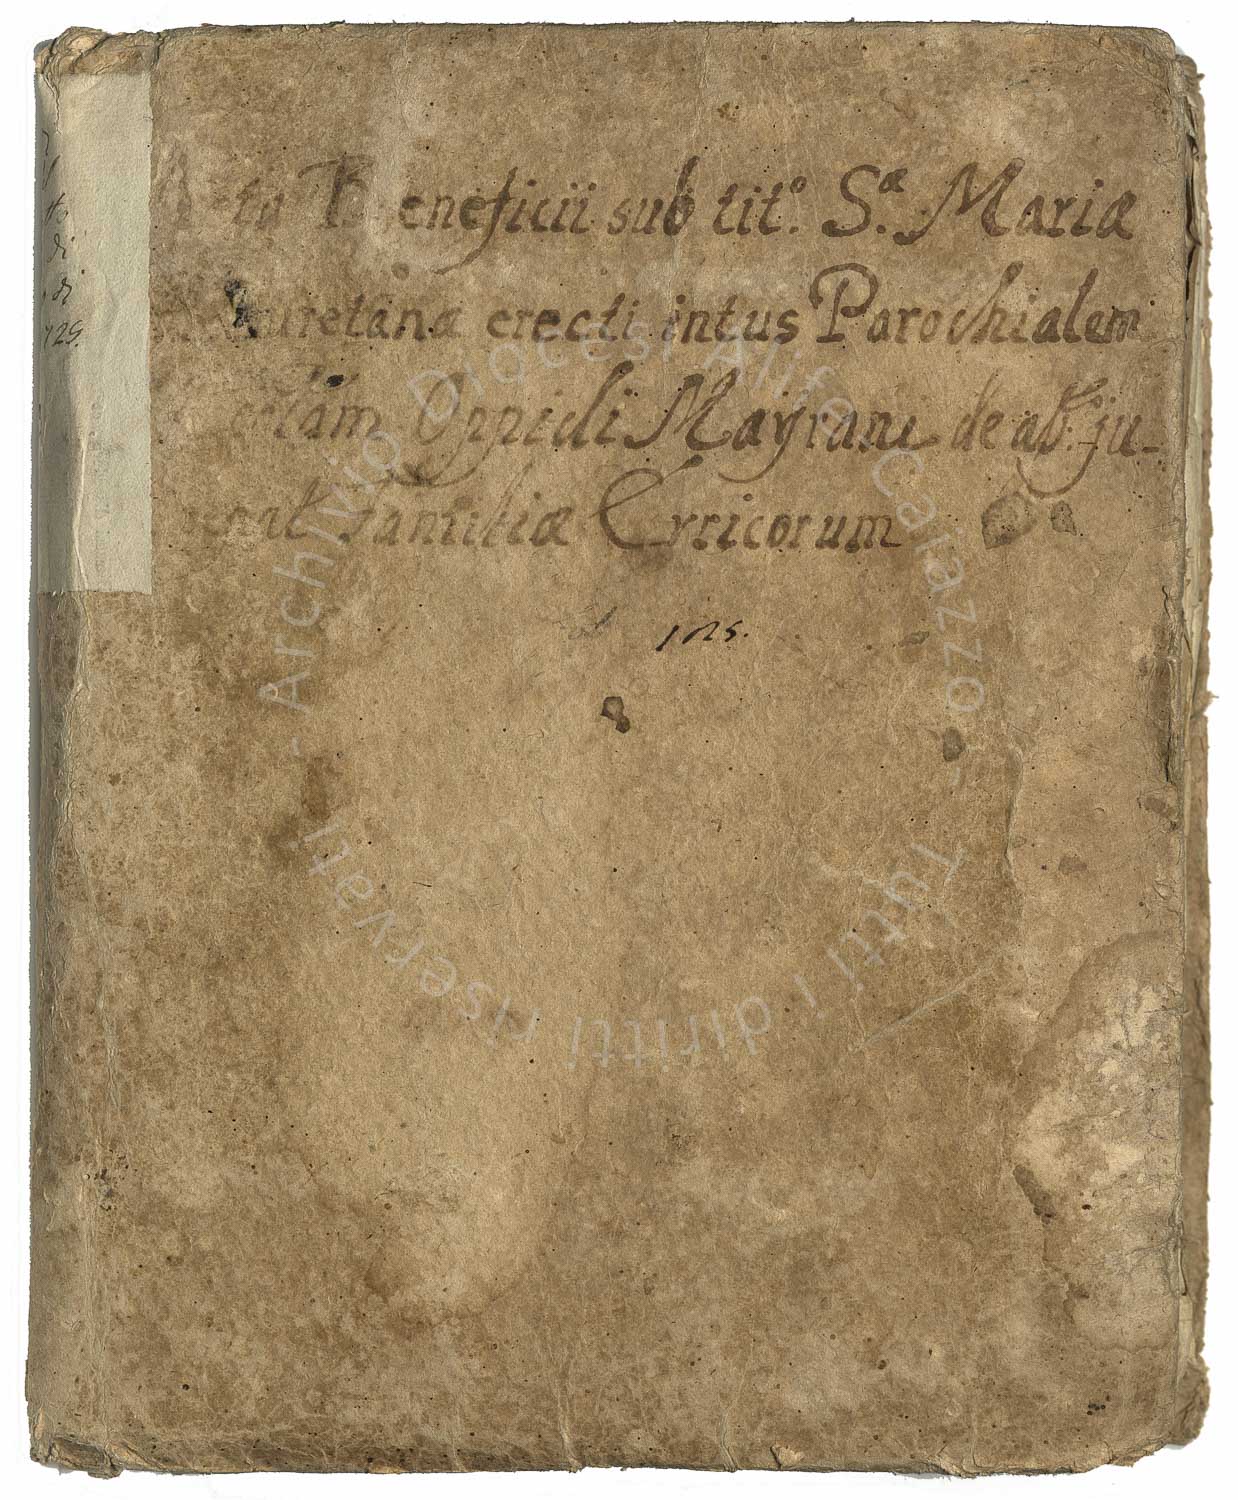 Beneficii sub tit.º S.æ Mariæ
erecti intus Parochialem
Oppidi Mayrani de
familiæ Erricorum
1725.
di
di
725.
Archivio Diocesi Alife Caiazzo - Tutti i diritti riservati -